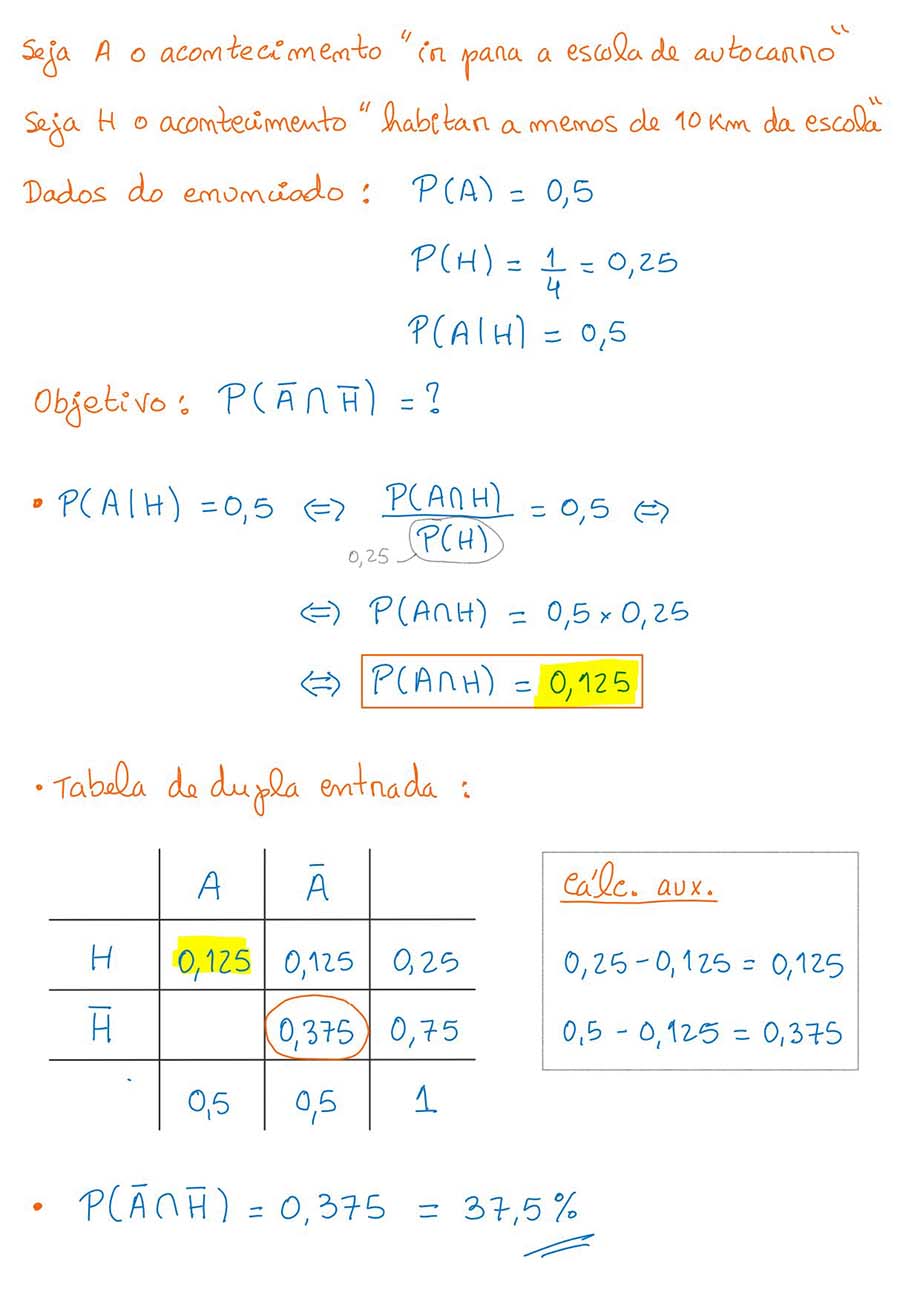 Seja A o acontecimento "ir para a escola de autocarro"
Seja H o acontecimento "habitar a menos de 10 Km da escola"
Dados do enunciado : P(A) = 0,5
P(H) = 1/4 = 0,25
P(A|H) = 0,5
Objetivo : P(A̅ ∩ H̅) = ?
• P(A|H) = 0,5 ⇔ P(A∩H)/P(H) = 0,5 ⇔
0,25
⇔ P(A∩H) = 0,5 × 0,25
⇔ P(A∩H) = 0,125
• Tabela de dupla entrada :
A A̅
H 0,125 0,125 0,25
H̅ 0,375 0,75
0,5 0,5 1
Cálc. aux.
0,25 - 0,125 = 0,125
0,5 - 0,125 = 0,375
• P(A̅ ∩ H̅) = 0,375 = 37,5%